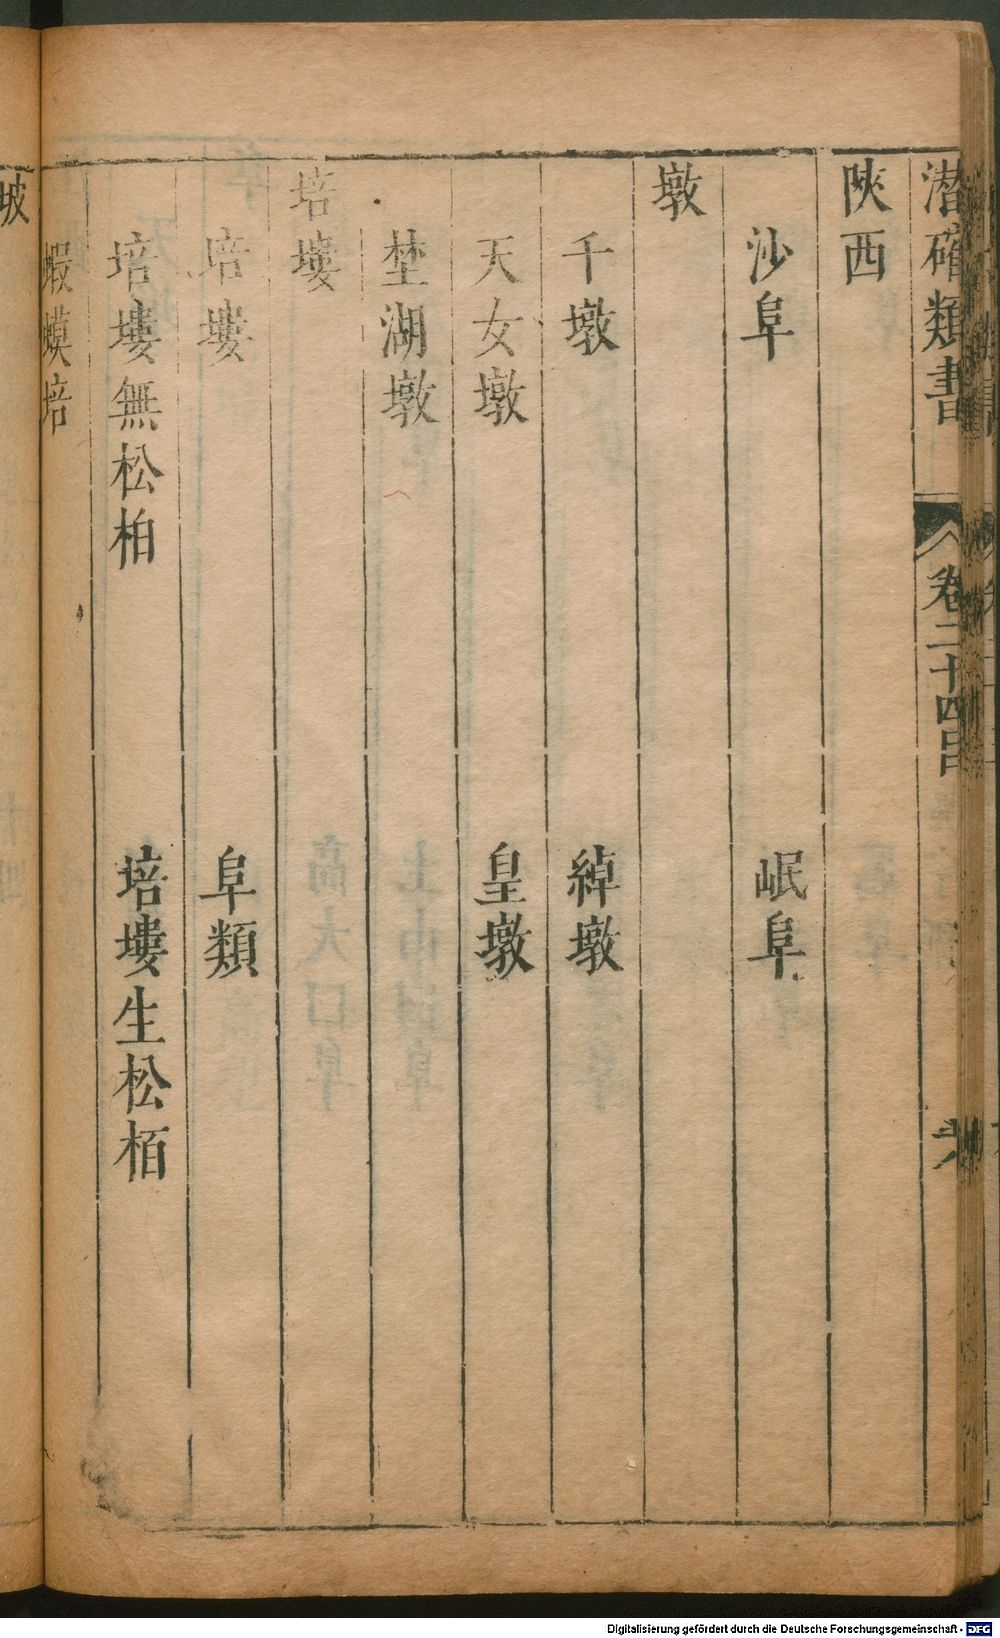 潛確類書 卷二十四目
陜西
沙阜 岷阜
墩
千墩 綽墩
天女墩 皇墩
埜湖墩
培塿
培塿 阜類
培塿無松柏 培塿生松栢
蝦蟆培
坡
Digitalisierung gefördert durch die Deutsche Forschungsgemeinschaft - DFG